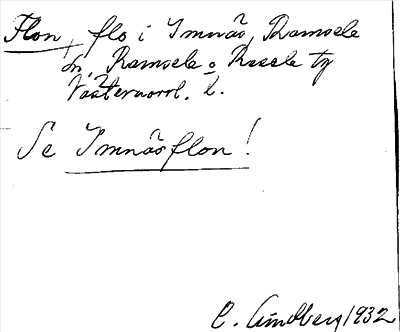 Flon, flo i Imnäs, Ramsele
sn, Ramsele o Resele tg
Västernorrl. l.
Se Imnäsflon!
C. Lindberg 1932